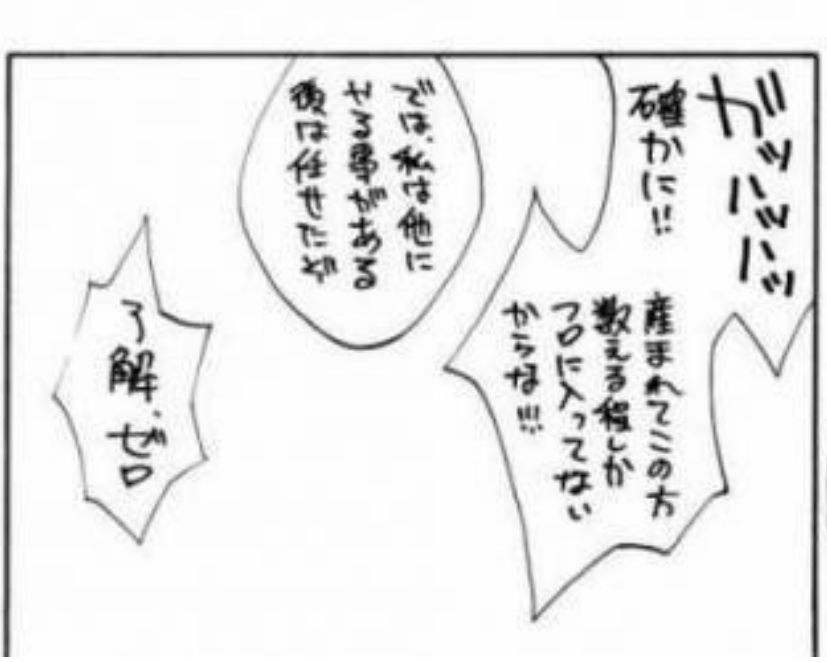 ガッハッハッ
確かに!!
産まれてこの方
数える程しか
フロに入ってない
からな!!!
では、私は他に
やる事がある
後は任せたぞ
了解、ゼロ